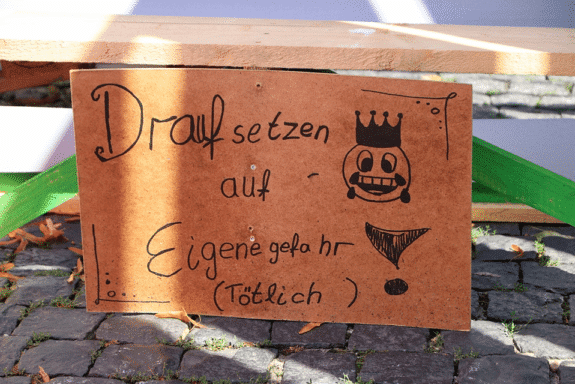 Drauf setzen
auf
Eigene gefahr
(Tötlich )